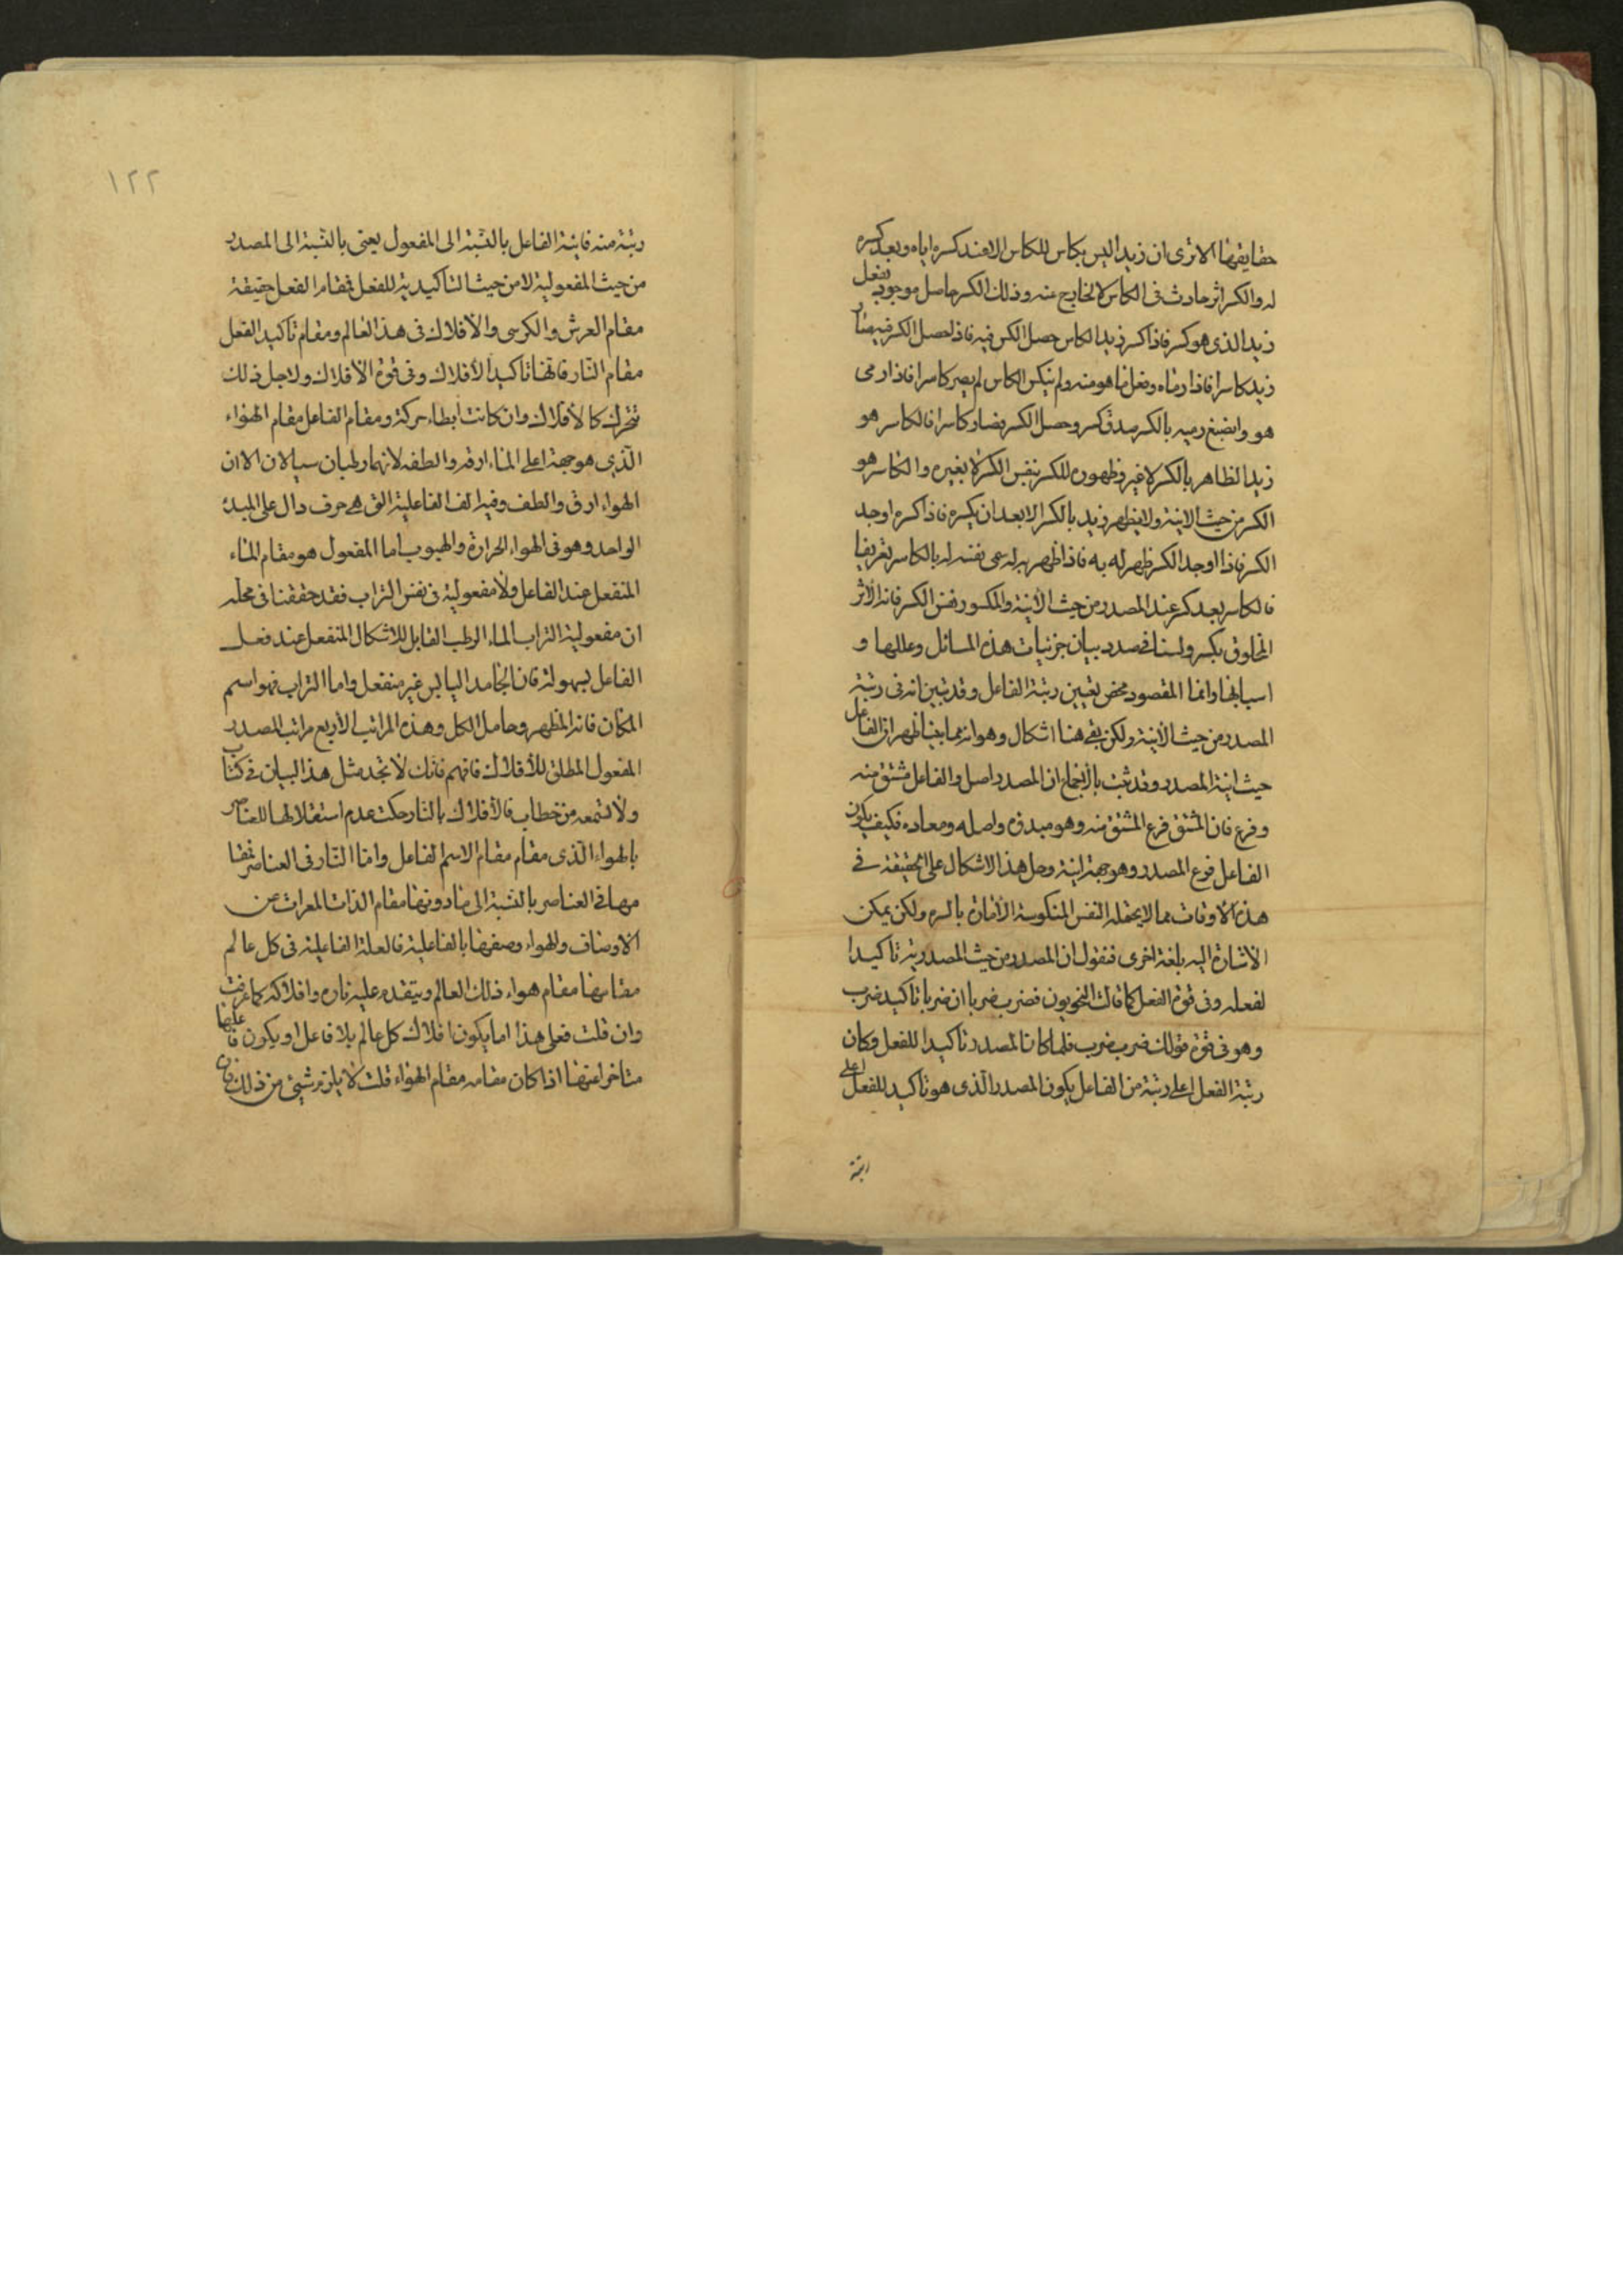 حقايقها الا ترى ان زيدا ليس بكاسر للكاس الا عند كسره اياه وبعد كسره
له والكسر اثر حادث فى الكاس لا خارج عنه وذلك الكسر حاصل موجود بفعل
زيد الذى هو كسر فاذا كسر زيد الكاس حصل الكسر فيه فاذا حصل الكسر فيه صار
زيد كاسرا فاذا رماه وفعل ما هو منه ولم ينكسر الكاس لم يصر كاسرا فاذا رمى
هو وانصبغ رميه بالكسر صدق كسر وحصل الكسر فصار كاسرا فالكاسر هو
زيد الظاهر بالكسر لا غير وظهوره للكسر بنفس الكسر لا بغيره والكاسر هو
الكسر من حيث الانية ولا يظهر زيد بالكسر الا بعد ان يكسره فاذا كسره اوجد
الكسر فاذا اوجد الكسر ظهر له به فاذا ظهر به له سمى نفسه له بالكاسر تعريفا
فالكاسر يعد كسر عند المصدر من حيث الانية والمكسور نفس الكسر فانه الاثر
المخلوق بكسر ولسنا فى صدد بيان جزئيات هذه المسائل وعللها و
اسبابها وانما المقصود محض تعيين رتبة الفاعل وقد تبين انه فى رتبة
المصدر من حيث الانية ولكن بقى هنا اشكال وهو انه مما بينا ظهر ان الفاعل
حيث انية المصدر وقد ثبت بالاجماع ان المصدر اصل والفاعل مشتق منه
وفرع فان المشتق فرع المشتق منه وهو مبدؤه واصله ومعاده فكيف يكون
الفاعل فرع المصدر وهو جهة انية وحل هذا الاشكال على الحقيقة فى
هذه الاوقات مما لا يحتمله النفس المنكوسة الامارة بالسوء ولكن يمكن
الاشارة اليه بلغة اخرى فنقول ان المصدر من حيث المصدرية تاكيد
لفعله وفى قوة الفعل كما قالت النحويون فضرب ضربا ان ضربا تاكيد ضرب
وهو فى قوة قولك ضرب ضرب فلما كان المصدر تاكيدا للفعل وكان
رتبة الفعل اعلى رتبة من الفاعل يكون المصدر الذى هو تاكيد للفعل اعلى
رتبة
١٢٢
رتبة منه فانية الفاعل بالنسبة الى المفعول يعنى بالنسبة الى المصدر
من حيث المفعولية لا من حيث التاكيدية للفعل فمقام الفعل حقيقة
مقام العرش والكرسى والافلاك فى هذا العالم ومقام تاكيد الفعل
مقام النار فانها تاكيد الافلاك وفى قوة الافلاك ولاجل ذلك
تتحرك كالافلاك وان كانت ابطاء حركة ومقام الفاعل مقام الهواء
الذى هو جهة اعلى الماء ارقه والطفه لانهما رطبان سيالان الا ان
الهواء ارق والطف وفيه الف الفاعلية التى هى حرف دال على المبدء
الواحد وهو فى الهواء الحرارة والهبوب اما المفعول هو مقام الماء
المنفعل عند الفاعل ولا مفعولية فى نفس التراب فقد حققنا فى محله
ان مفعولية التراب الماء الرطب القابل للاشكال المنفعل عند فعل
الفاعل بسهولة فان الجامد اليابس غير منفعل واما التراب فهو اسم
المكان فانه المظهر وحامل الكل وهذه المراتب الاربع مراتب المصدر
المفعول المطلق للافلاك فافهم فانك لا تجد مثل هذا البيان فى كتاب
ولا تسمعه من خطاب فالافلاك بالنار حكت عدم استقلالها للعناصر
بالهواء الذى مقام مقام الاسم الفاعل واما النار فى العناصر فمقا
مها فى العناصر بالنسبة الى ما دونها مقام الذات المعرات عن
الاوصاف والهواء وصفها بالفاعلية فالعلة الفاعلية فى كل عالم
مقامها مقام هواء ذلك العالم ويتقدم عليه ناره وافلاكه كما عرفت
وان قلت فعلى هذا اما يكون افلاك كل عالم بلا فاعل او يكون فاعلها
متاخرا عنها اذا كان مقامه مقام الهواء قلت لا يلزم شيئ من ذلك فان